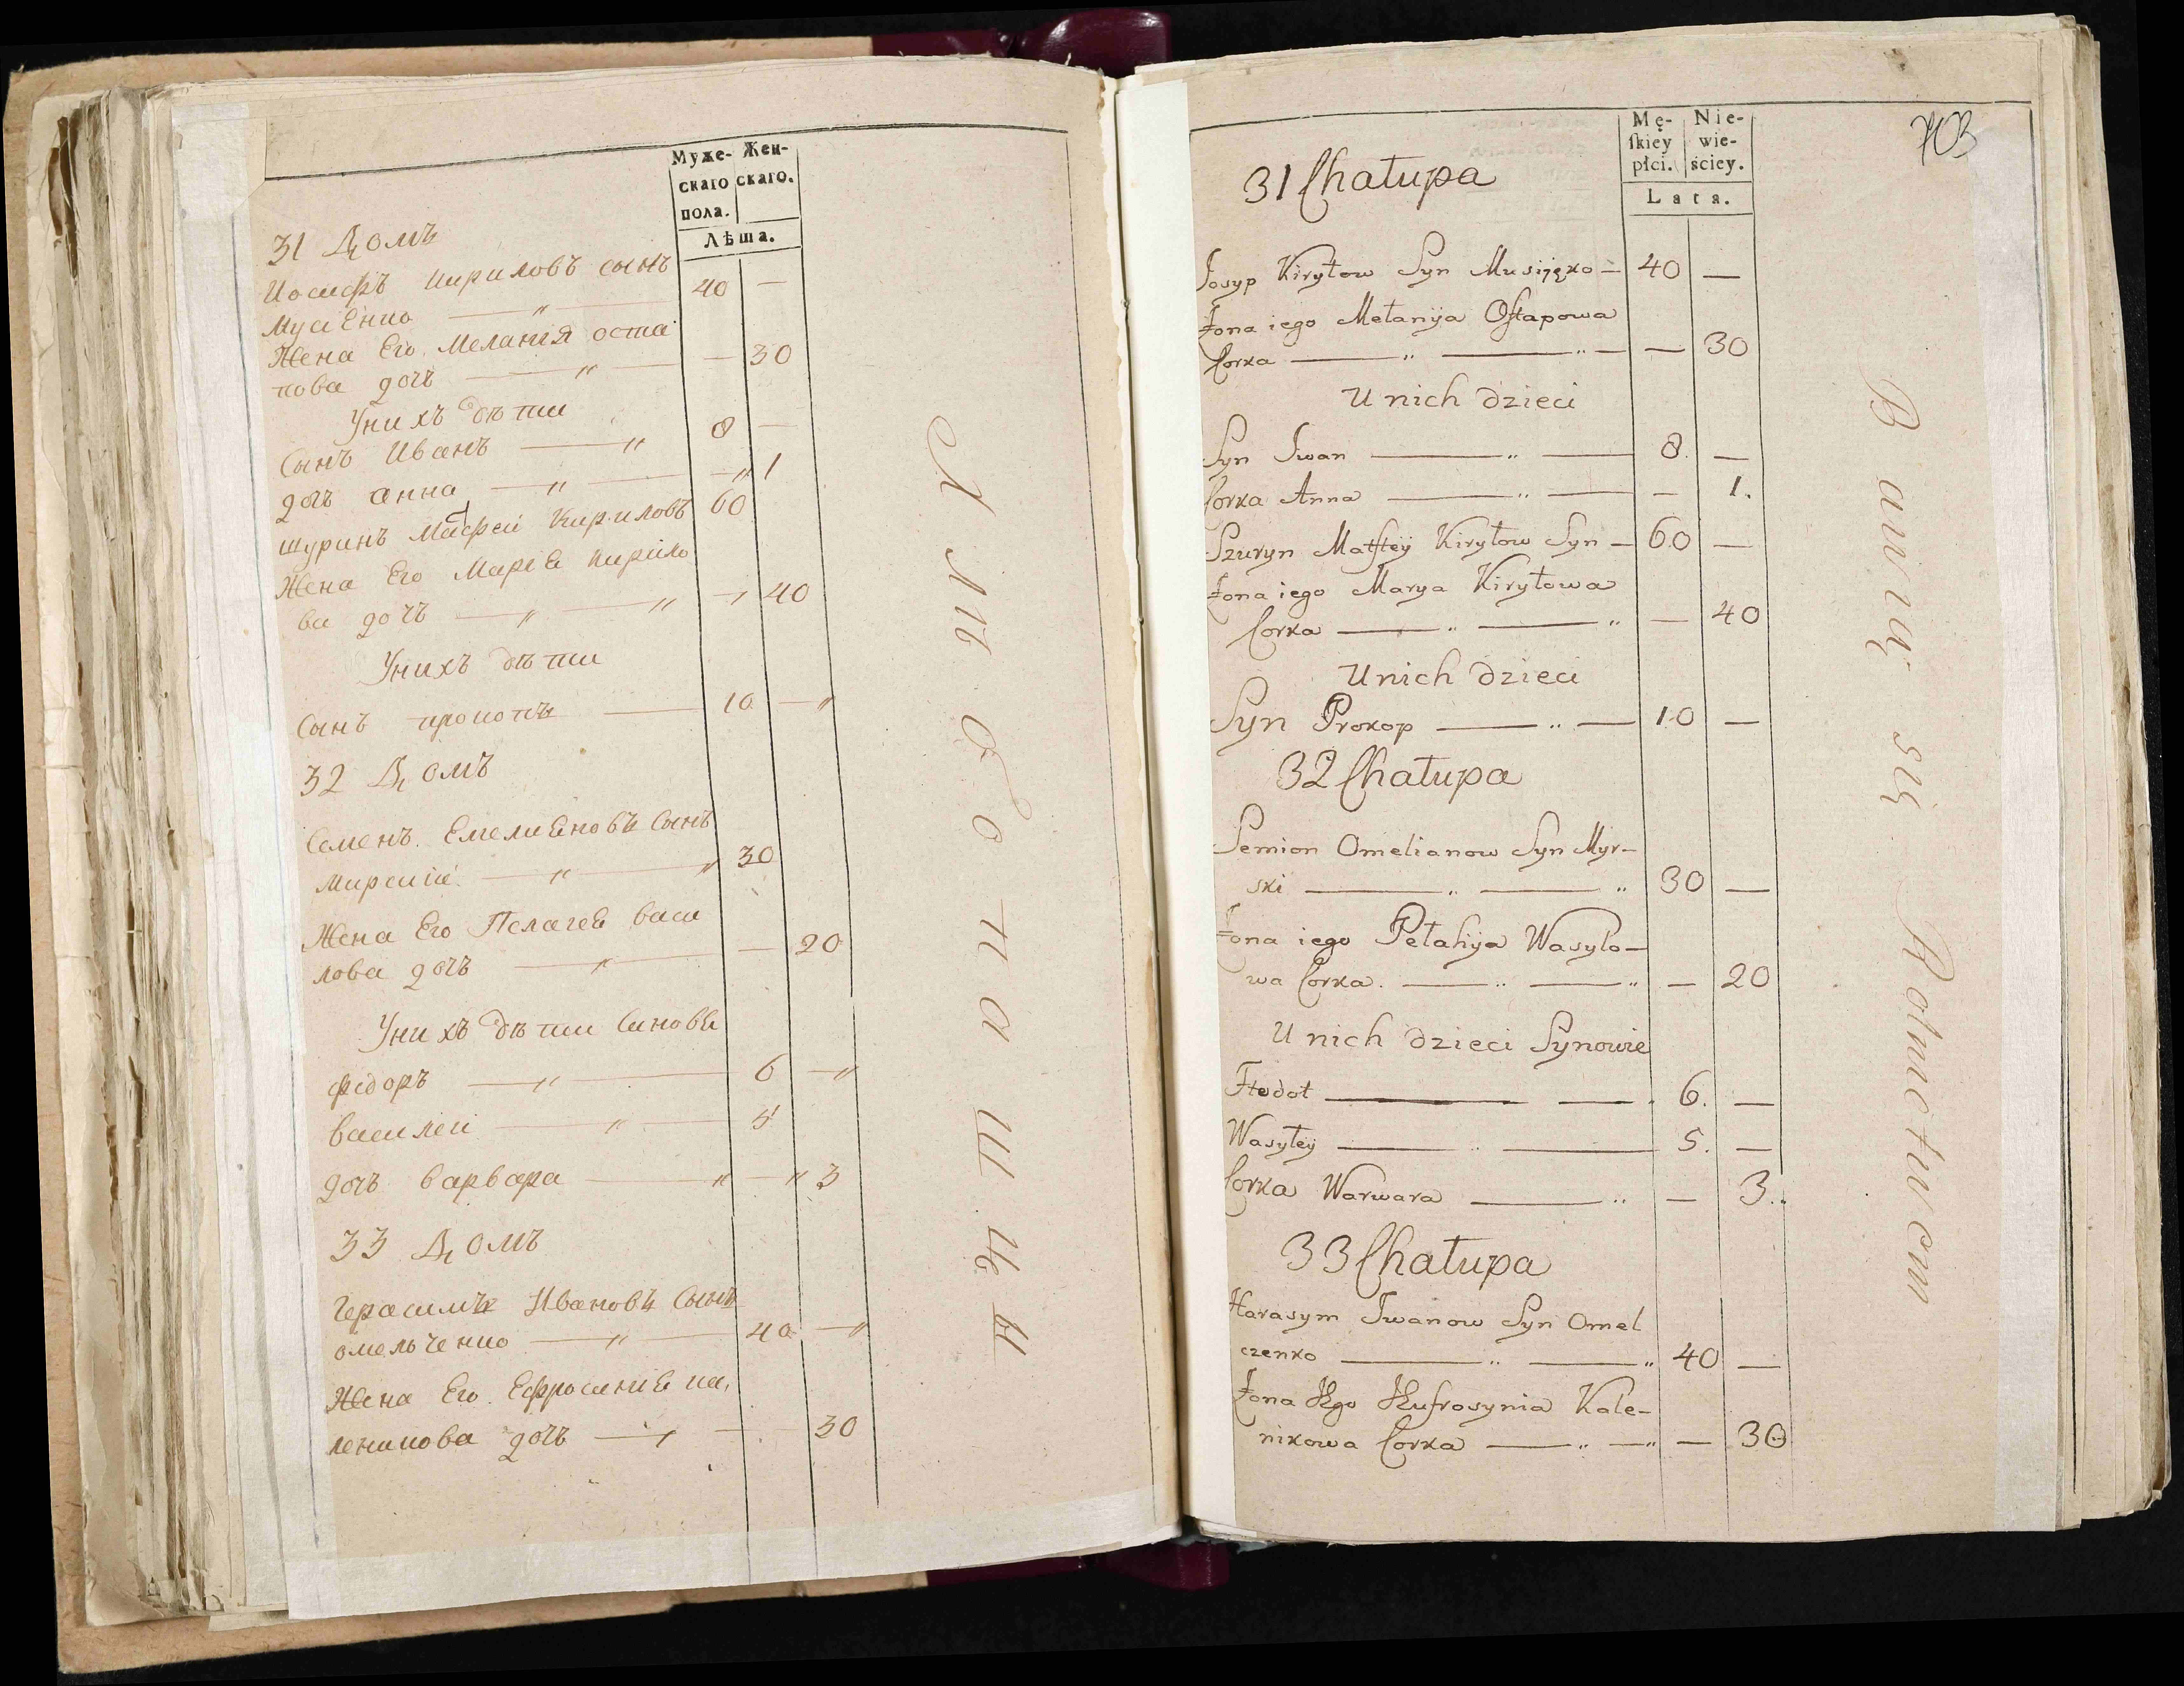 Муже- Жен-
скаго скаго.
пола.
Лѣта.
31 Домъ
Иосифъ Кириловъ сынъ
Мусіенко — „ — 40 —
Жена Его Меланія оста
пова дочъ — „ — — 30
Унихъ дѣти
Сынъ Иванъ — „ 8 —
дочъ анна — „ — — „ 1
шуринъ Матфеи Кириловъ 60
Жена Его Маріа Кирило
ва дочъ — „ — „ — „ 40
Унихъ дѣти
Сынъ прокопъ — 10 — „
32 Домъ
Семенъ Емелиановъ Сынъ
Мирскій — „ — „ 30
Жена Его Пелагеа Васи
лова дочъ — „ — — 20
Унихъ дѣти Синовіа
федоръ — „ — 6 — „
Василеи — „ — 5
дочъ варвара — „ — „ 3
33 Домъ
Герасимъ Ивановъ Сынъ
омельченко — „ — 40 — „
Жена Его Ефросиніа ка,
леникова дочъ — „ — 30
Хлѣбопашцы
703
Mę- Nie-
ſkiey wie-
płci. ściey.
Lata.
31 Chałupa
Josyp Kiryłow Syn Musijęko — 40 —
Żona iego Mełanija Ostapowa
Corka — „ — „ — — 30
U nich dzieci
Syn Iwan — „ — 8. —
Corka Anna — „ — — 1.
Szuryn Matftey Kiryłow Syn — 60 —
Żona iego Marya Kiryłowa
Corka — „ — „ — 40
U nich dzieci
Syn Prokop — „ — 10 —
32 Chałupa
Semion Omelianow Syn Myr-
ski — „ — „ 30 —
Żona iego Pełahija Wasylo-
wa Corka. — „ — „ — 20
U nich dzieci Synowie
Ftedot — — „ 6. —
Wasyłey — „ — 5. —
Corka Warwara — „ — 3.
33 Chałupa
Harasym Iwanow Syn Omel
czenko — „ — „ 40 —
Żona Jego Jeufrosynia Kale-
nikowa Corka — „ — „ — 30
Bawią się Rolnictwem